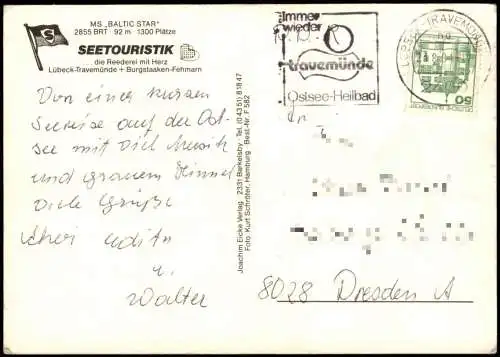 MS „BALTIC STAR"
2855 BRT · 92 m · 1300 Plätze
S
SEETOURISTIK
... die Reederei mit Herz
Lübeck-Travemünde + Burgstaaken-Fehmarn
Von einer kurzen
Seereise auf der Ost-
see mit viel Musik
und grauem Himmel
viele Grüße
Edith
u.
Walter
Joachim Eicke Verlag · 2331 Barkelsby · Tel. (04351) 81847
Foto: Kurt Schröter, Hamburg · Best.-Nr. F 582
immer
wieder
travemünde
Ostsee-Heilbad
LÜBECK-TRAVEMÜNDE
50
An
8028 Dresden A